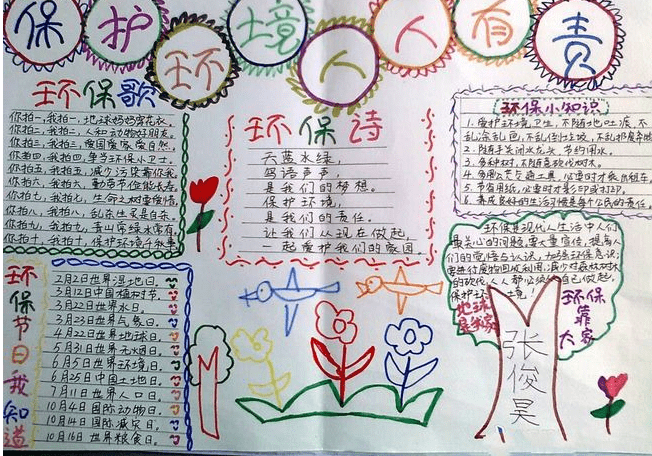 保护环境人人有责
环保歌
你拍一,我拍一,地球妈妈穿花衣。
你拍二,我拍二,人和动物好朋友。
你拍三,我拍三,爱国爱家爱自然。
你拍四,我拍四,争当环保小卫士。
你拍五,我拍五,减少污染靠你我。
你拍六,我拍六,勤俭节
你拍七,我拍七,生命之树
你拍八,我拍八,乱杀生灵是自杀。
你拍九,我拍九,青山常绿水常有。
你拍十,我拍十,保护环境
环保诗
天蓝水绿,
鸟语声声,
是我们的梦想。
保护环境,
是我们的责任。
让我们从现在做起,
一起爱护我们的家园。
环保小知识
1.爱护环境卫生,不随地吐痰,不
乱涂乱画,不乱倒垃圾,不乱扔废弃物
2.随手关闭水龙头,节约用水。
3.多种树,不随意砍伐树木。
4.多用公共交通工具,必要时才乘出租车。
5.节省用纸,必要时才影印或打印。
6.养成良好的生活习惯是每个公民的责任。
环保是现代人生活中人们
最关心的问题,要大量宣传,提高人
们的觉悟与认识,加强环保意识;
的砍伐,人人都必须
保护环境
地球
是我家
环保
靠
大家
张俊昊
环保节日我知道
2月2日世界湿地日。
3月12日中国植树节。
3月22日世界水日。
3月23日世界气象日。
4月22日世界地球日。
5月31日世界无烟日。
6月5日世界环境日。
6月25日中国土地日。
7月11日世界人口日。
10月4日国际动物日。
10月14日国际减灾日。
10月16日世界粮食日。